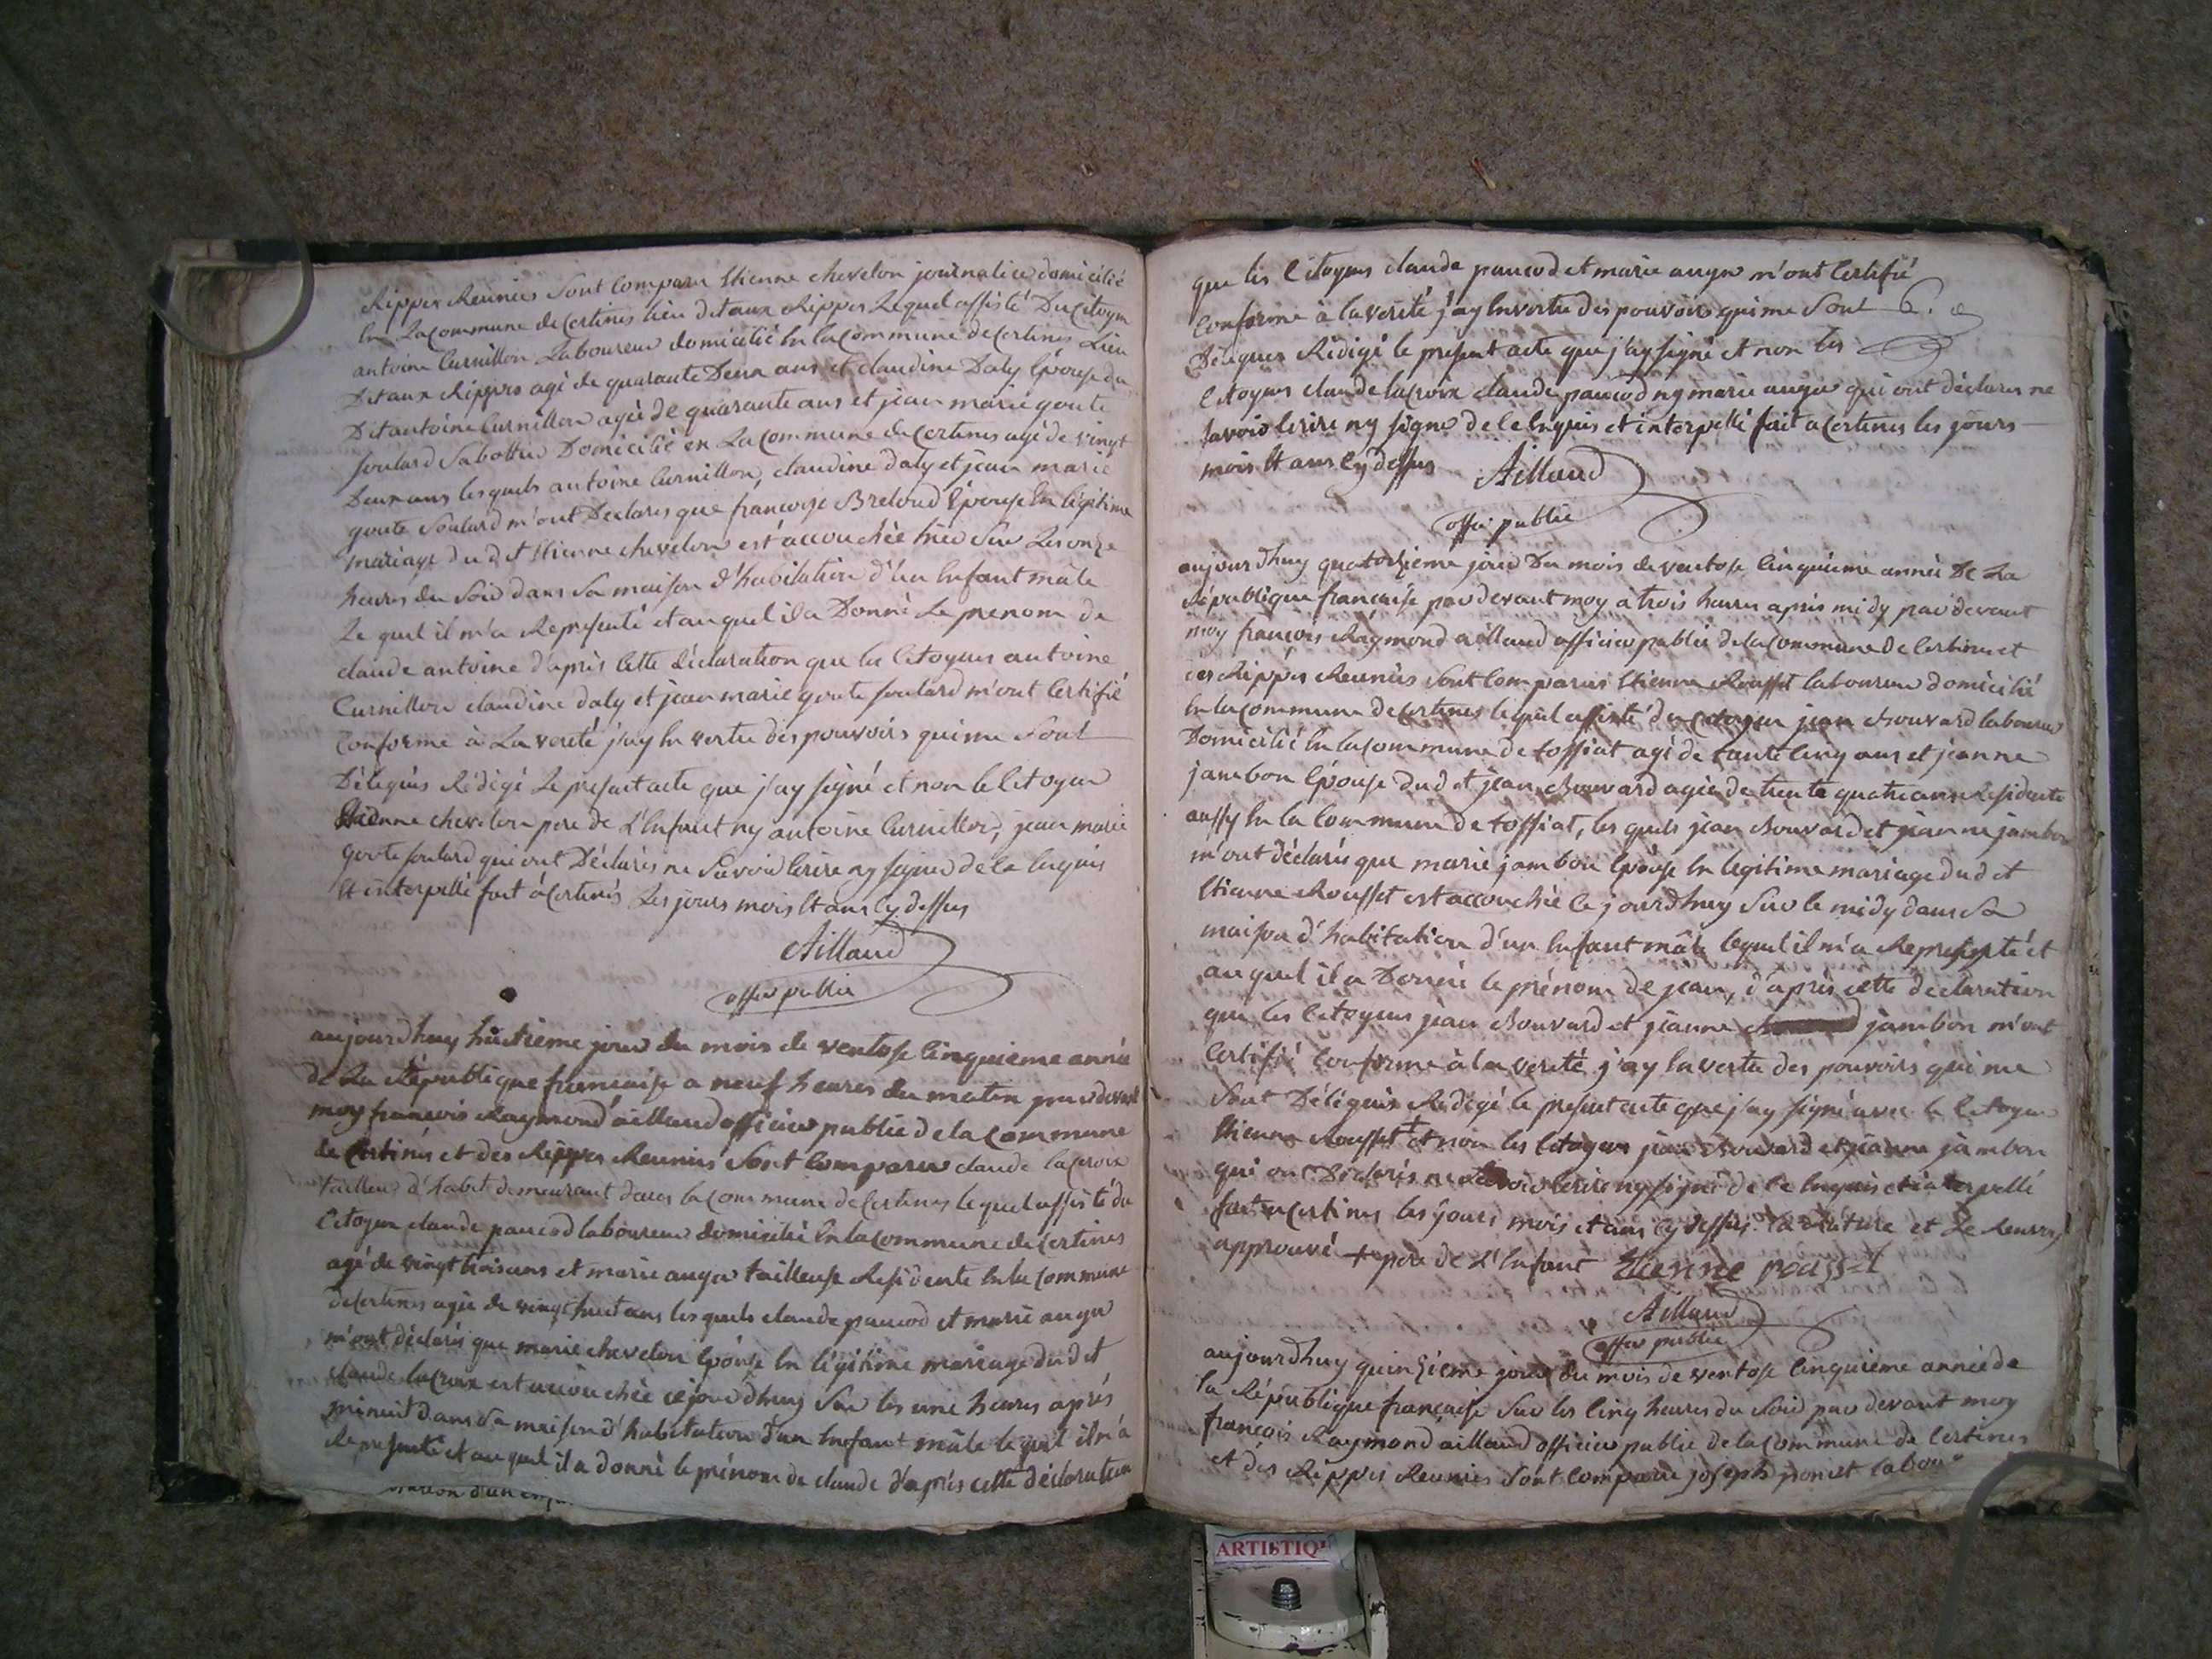 Rippes Reunies Sont Comparu Etienne chevelon journalier domicilié
En La commune de Certines lieu dit aux Rippes Lequel assisté Du Citoyen
antoine Curnillon Laboureur domicilié En la commune de Certines Lieu
Dit aux Rippes agé de quarante Deux ans et claudine Daly Epouse du
Dit antoine Curnillon agée de quarante ans et jean marie goute
soulard Sabottier Domicilié en La commune de Certines agé de vingt
Deux ans lesquels antoine Curnillon, claudine daly et jean marie
goute soulard m'ont Declares que francoise Breloud Epouse En légitime
mariage dud et Etienne chevelon est accouchée hier Sur Les onze
heures du Soir dans Sa maison d'habitation d'un Enfant mâle
Le quel il m'a Représenté et auquel il a Donné Le prenom de
claude antoine d'après Cette déclaration que les Citoyens antoine
Curnillon claudine daly et jean marie goute soulard m'ont Certifié
Conforme à La verité j'ay En vertu des pouvoirs qui me Sont
Délégués Rédigé Le present acte que j'ay signé et non le Citoyen
Etienne chevelon pere de L'Enfant ny antoine Curnillon, jean marie
goute soulard qui ont Déclarés ne Savoir Ecrire ny signer de ce Enquis
Et interpellé fait à Certines Les jours mois Et ans Cy dessus
Aillaud
offier public
aujourdhuy huitieme jour du mois de ventose Cinquieme année
de La République francaise a neuf heures du matin par devant
moy francois Raymond aillaud officier public de la Commune
de Certines et des Rippes Reunies Sont Comparu claude lacroix
tailleur d'habit demeurant dans la commune de Certines lequel assisté du
Citoyen claude paucod laboureur domicilié En la commune de Certines
agé de vingt trois ans et marie auger tailleuse Residente En la commune
de Certines agée de vingt huit ans les quels claude paucod et marie auger
m'ont déclarés que marie chevelon Epouse En légitime mariage dud et
claude lacroix est accouchée cejourdhuy Sur les une heures après
minuit dans Sa maison d'habitation d'un Enfant mâle le quel il m'a
Représenté et auquel il a donné le prénom de claude d'après cette déclaration
que les Citoyens claude paucod et marie auger m'ont Certifié
Conforme à la verité j'ay En vertu des pouvoirs qui me Sont 6.
Délégués Rédigé le present acte que j'ay signé et non les
Citoyens claude lacroix claude paucod ny marie auger qui ont déclarés ne
Savoir Ecrire ny signer de ce Enquis et interpellé fait a Certines les jours
mois Et ans Cy dessus Aillaud
offier public
aujourdhuy quatorzieme jour Du mois de ventose Cinquieme année De La
République française par devant moy à trois heures après midy par devant
moy françois Raymond aillaud officier public de la Commune de Certines et
des Rippes Reunies Sont Comparus Etienne Rousset laboureur domicilié
En la commune de Certines lequel assisté du Citoyen jean chouvard laboureur
Domicilié En la commune de tossiat agé de tante Cinq ans et jeanne
jambon Epouse dud et jean chouvard agée de trente quatre ans Residente
aussy En la Commune de tossiat, les quels jean chouvard et jeanne jambon
m'ont déclarés que marie jambon Epouse En legitime mariage dud et
Etienne Rousset est accouchée ce jourdhuy Sur le midy dans Sa
maison d'habitation d'un Enfant mâle lequel il m'a Representé et
auquel il a Donné le prénom de jean, d'après cette declaration
que les Citoyens jean chouvard et jeanne jambon m'ont
Certifié Conforme à la verité j'ay En vertu des pouvoirs qui me
Sont Délégués Rédigé le present acte que j'ay signé avec le Citoyen
Etienne Rousset + et non les Citoyens jean chouvard et jeanne jambon
qui ont Déclarés ne Savoir Ecrire ny signer de ce Enquis et interpellé
fait a Certines les jours mois et ans Cy dessus la Rature et Le Renvoy
approuvé + pere de L'Enfant Etienne rousset
Aillaud
offier public
aujourdhuy quinzieme jour du mois de ventose Cinquieme année de
la République française Sur les Cinq heures du Soir par devant moy
françois Raymond aillaud officier public de la Commune de Certines
et des Rippes Reunies Sont Comparu joseph poncet labour
ARTISTIQ